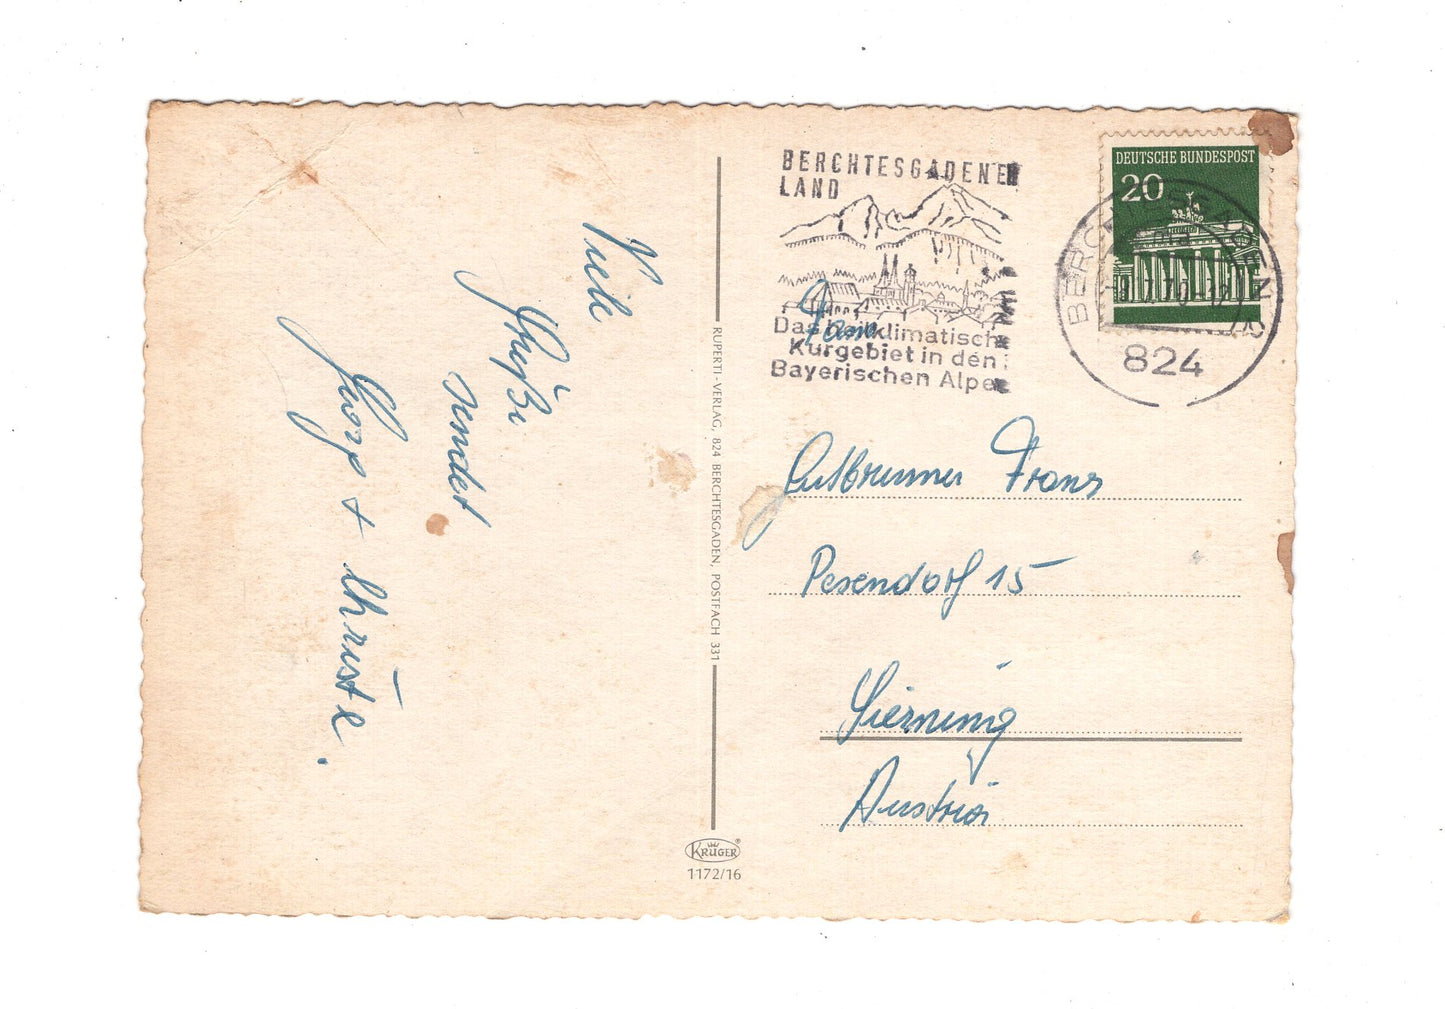 Viele
Grüße
sendet
+ Christe.
RUPERTI-VERLAG, 824 BERCHTESGADEN, POSTFACH 331
KRÜGER
1172/16
BERCHTESGADENER
LAND
Das heilklimatische
Kurgebiet in den
Bayerischen Alpe
DEUTSCHE BUNDESPOST
20
BERCHTESGADEN
70-12
824
Fam
Franz
Pesendorf 15
Sierning
Austria